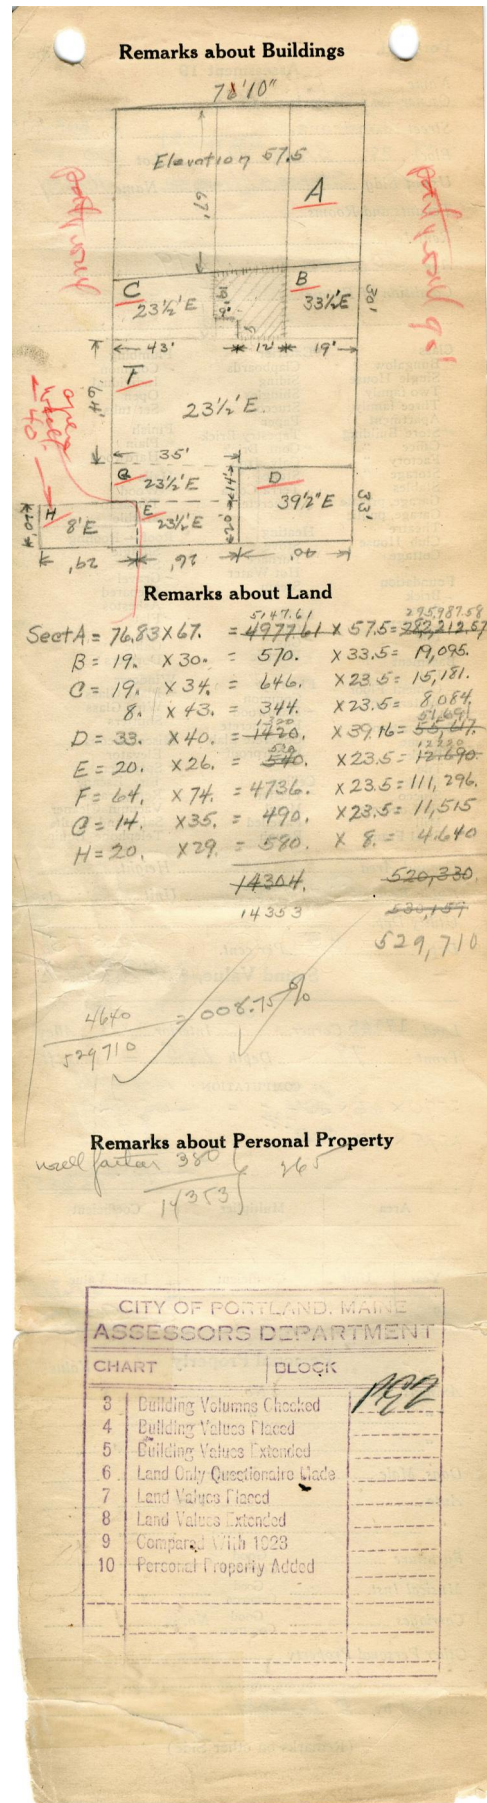 Remarks about Buildings
76'10"
Elevation 57.5
party wall
party wall 90'
67'
A
C
23½'E
19'
9'
B
33½'E
30'
43'
12'
19'
F
64'
23½'E.
open
wall
40'
35'
G
23½'E
14'
D
39'2"E
33'
H
8'E
20'
E
23½'E
20'
29'
26'
40'
Remarks about Land
5147.61 295987.58
Sect A = 76.83 X 67. = 4977.61 X 57.5 = 282,212.57
B = 19. X 30. = 570. X 33.5 = 19,095.
C = 19. X 34. = 646. X 23.5 = 15,181.
8. X 43. = 344. X 23.5 = 8,084.
1320 51,691
D = 33. X 40. = 1420. X 39.16 = 55,617.
520 12220
E = 20. X 26. = 540. X 23.5 = 12,690.
F = 64. X 74. = 4736. X 23.5 = 111,296.
G = 14. X 35. = 490. X 23.5 = 11,515
H = 20. X 29. = 580. X 8. = 4.640
14304. 520,330.
14353 530,157
529,710
4640 = 008.75%
529710
Remarks about Personal Property
wall factor 380
14353
265
CITY OF PORTLAND, MAINE
ASSESSORS DEPARTMENT
CHART BLOCK
3 Building Volumns Checked
4 Building Values Placed
5 Building Values Extended
6 Land Only Questionaire Made
7 Land Values Placed
8 Land Values Extended
9 Compared With 1923
10 Personal Property Added